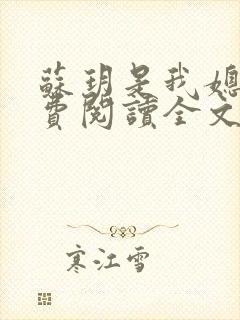 蘇玥是我媳
費閱讀全文
寒江雪